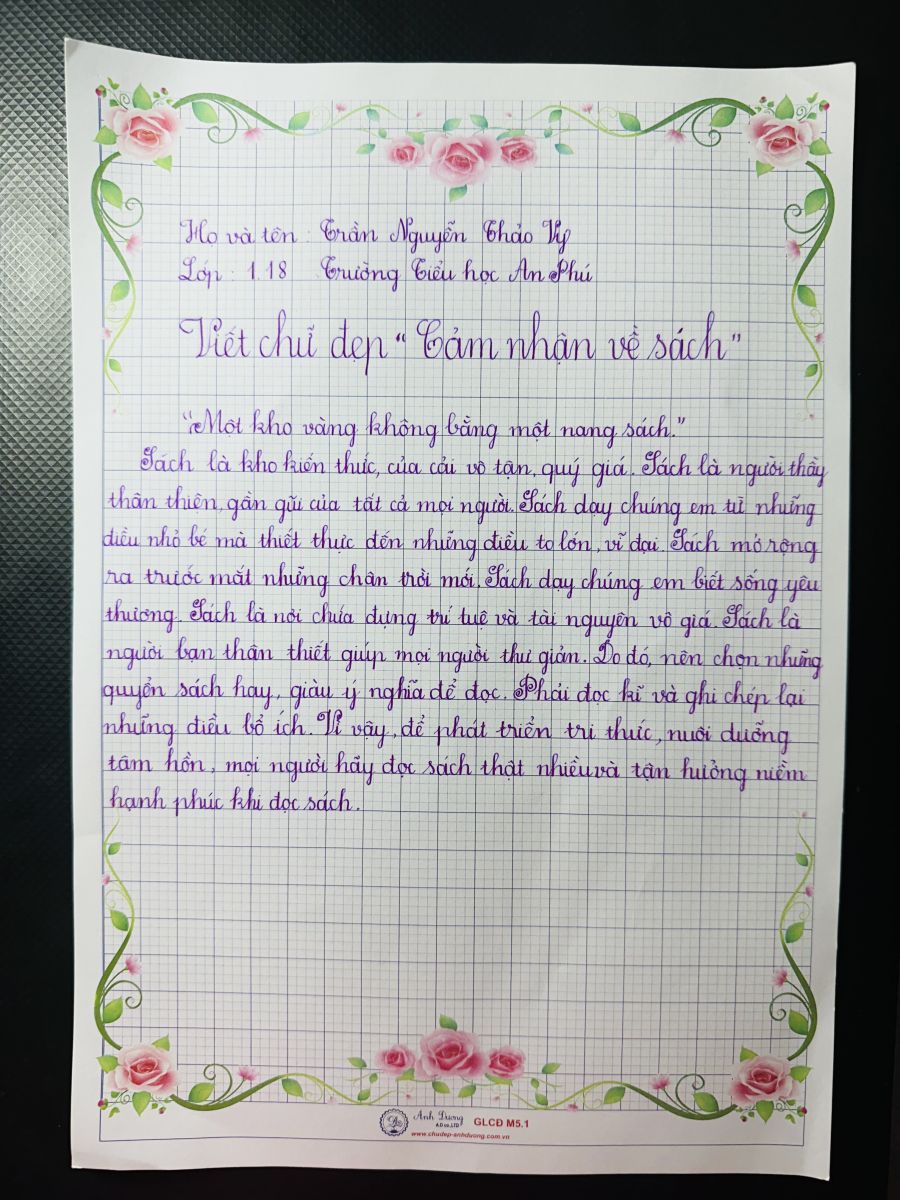 Họ và tên : Trần Nguyễn Thảo Vy
Lớp : 1.18 Trường Tiểu học An Phú
Viết chữ đẹp “Cảm nhận về sách”
“Một kho vàng không bằng một nang sách.”
Sách là kho kiến thức, của cải vô tận, quý giá. Sách là người thầy
thân thiện, gần gũi của tất cả mọi người. Sách dạy chúng em từ những
điều nhỏ bé mà thiết thực đến những điều to lớn, vĩ đại. Sách mở rộng
ra trước mắt những chân trời mới. Sách dạy chúng em biết sống yêu
thương. Sách là nơi chứa đựng trí tuệ và tài nguyên vô giá. Sách là
người bạn thân thiết giúp mọi người thư giản. Do đó, nên chọn những
quyển sách hay, giàu ý nghĩa để đọc. Phải đọc kĩ và ghi chép lại
những điều bổ ích. Vì vậy, để phát triển tri thức, nuôi dưỡng
tâm hồn, mọi người hãy đọc sách thật nhiều và tận hưởng niềm
hạnh phúc khi đọc sách.
Anh Dương
A.D co.,LTD
GLCĐ M5.1
www.chudep-anhduong.com.vn